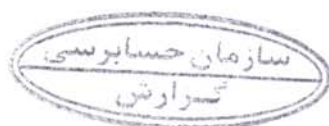 سازمان حسابرسی
گزارش